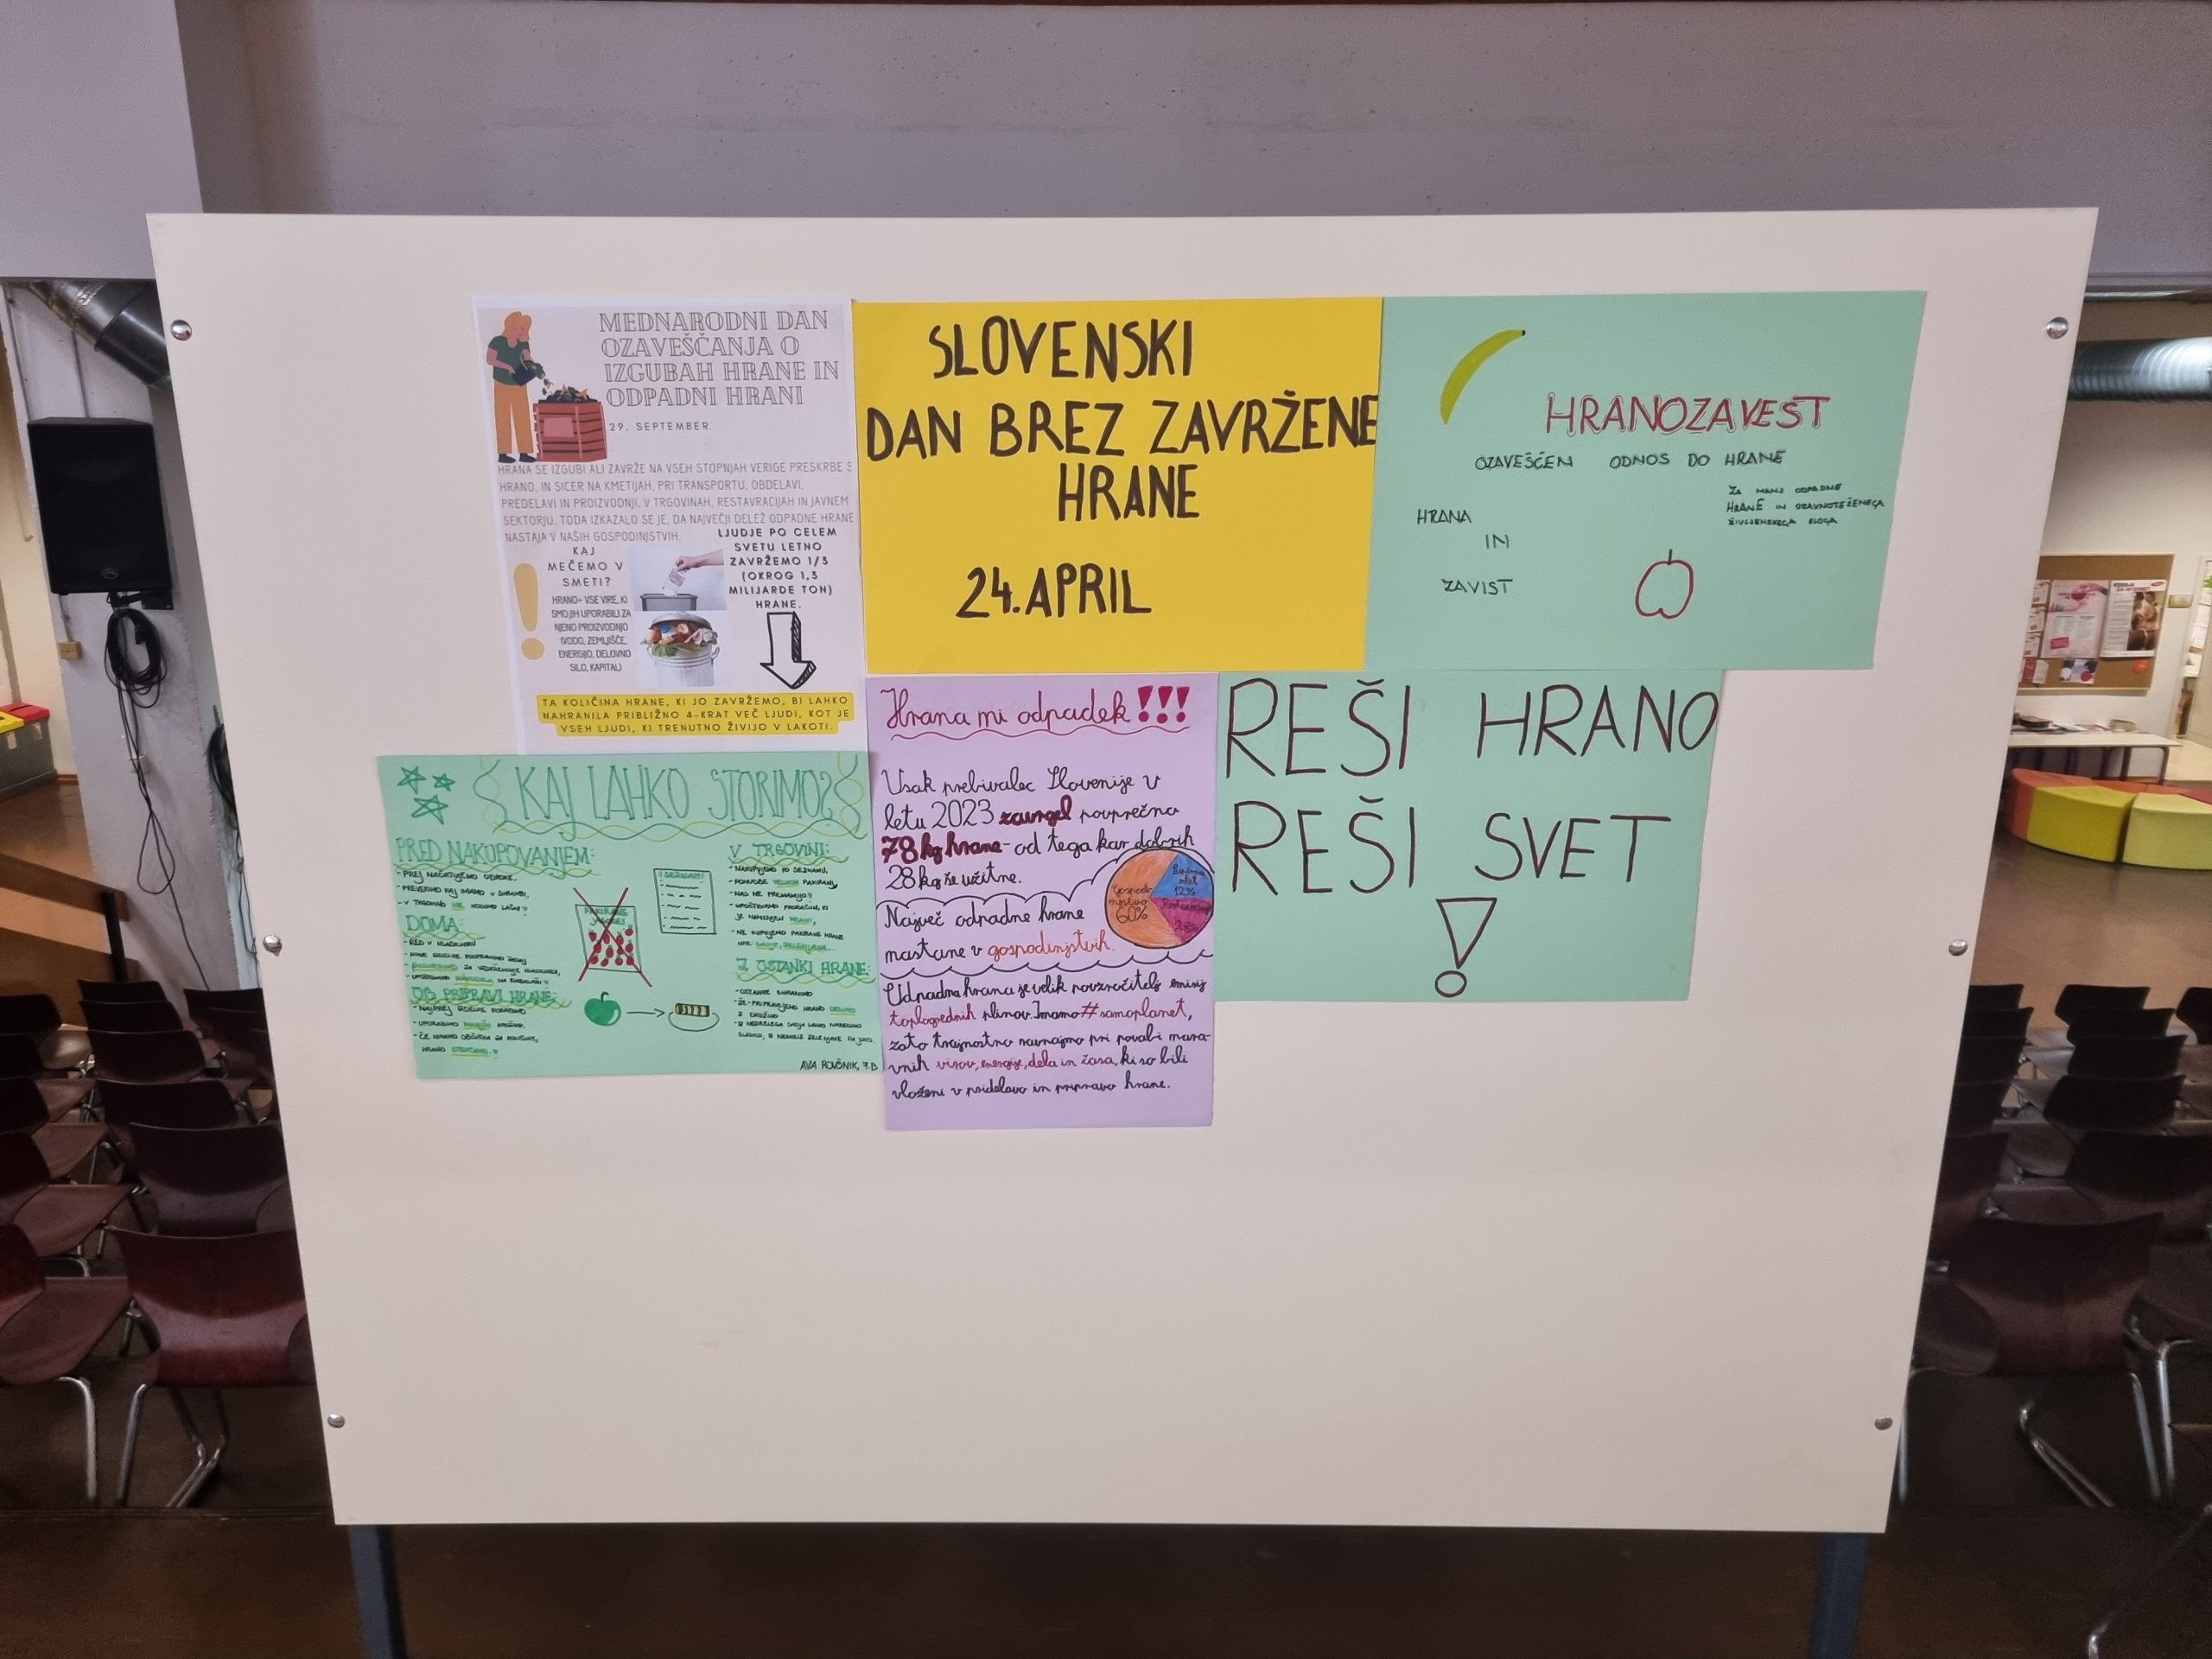 MEDNARODNI DAN
OZAVEŠČANJA O
IZGUBAH HRANE IN
ODPADNI HRANI
29. SEPTEMBER
HRANA SE IZGUBI ALI ZAVRŽE NA VSEH STOPNJAH VERIGE PRESKRBE S
HRANO, IN SICER NA KMETIJAH, PRI TRANSPORTU, OBDELAVI,
PREDELAVI IN PROIZVODNJI, V TRGOVINAH, RESTAVRACIJAH IN JAVNEM
SEKTORJU. TODA IZKAZALO SE JE, DA NAJVEČJI DELEŽ ODPADNE HRANE
NASTAJA V NAŠIH GOSPODINJSTVIH.
KAJ
MEČEMO V
SMETI?
HRANO+ VSE VIRE, KI
SMO JIH UPORABILI ZA
NJENO PROIZVODNJO
(VODO, ZEMLJIŠČE,
ENERGIJO, DELOVNO
SILO, KAPITAL)
LJUDJE PO CELEM
SVETU LETNO
ZAVRŽEMO 1/3
(OKROG 1,3
MILIJARDE TON)
HRANE.
TA KOLIČINA HRANE, KI JO ZAVRŽEMO, BI LAHKO
NAHRANILA PRIBLIŽNO 4-KRAT VEČ LJUDI, KOT JE
VSEH LJUDI, KI TRENUTNO ŽIVIJO V LAKOTI.
SLOVENSKI
DAN BREZ ZAVRŽENE
HRANE
24. APRIL
HRANOZAVEST
OZAVEŠČEN ODNOS DO HRANE
ZA MANJ ODPADNE
HRANE IN URAVNOTEŽENEGA
ŽIVLJENSKEGA SLOGA
HRANA
IN
ZAVIST
KAJ LAHKO STORIMO?
PRED NAKUPOVANJEM:
- PREJ NAČRTUJEMO OBROKE,
- PREVERIMO KAJ IMAMO V SHRAMBI,
- V TRGOVINO NE HODIMO LAČNI!
DOMA:
- RED V HLADILNIKU
NA EMBALAŽI!
OB PRIPRAVI HRANE:
- NAJPREJ
- UPORABIMO
HRANO
V TRGOVINI:
- NAKUPUJEMO PO SEZNAMU,
- PONUDBE VELIKIH PAKIRANJ
NAS NE PREMAMIJO!
- UPOŠTEVAMO PRORAČUN, KI
JE NAMENJEN HRANI,
- NE KUPUJEMO PAKIRANE HRANE
NPR. SADJE, ZELENJAVA...
Z OSTANKI HRANE:
- OSTANKE SHRANIMO
- ŽE PRIPRAVLJENO HRANO DELIMO
Z DRUŽINO
AVA ROVŠNIK, 7.B
Hrana ni odpadek!!!
Vsak prebivalec Slovenije v
letu 2023 zavrgel povprečno
78 kg hrane - od tega kar dobrih
28 kg še užitne.
Največ odpadne hrane
nastane v gospodinjstvih.
Gospodi-
njstvo
60%
12%
28%
Odpadna hrana je velik povzročitelj emisij
toplogrednih plinov. Imamo #samoplanet,
zato trajnostno ravnajmo pri porabi nara-
vnih virov, energije, dela in časa, ki so bili
vloženi v pridelavo in pripravo hrane.
REŠI HRANO
REŠI SVET
!